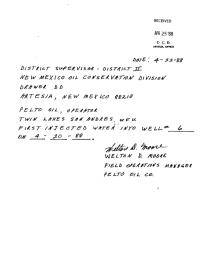 RECEIVED
APR 25 '88
O. C. D.
ARTESIA, OFFICE
DATE: 4-22-88
DISTRICT SUPERVISOR - DISTRICT II
NEW MEXICO OIL CONSERVATION DIVISION
DRAWER DD
ARTESIA, NEW MEXICO 88210
PELTO OIL, OPERATOR
TWIN LAKES SAN ANDRES, UNIT
FIRST INJECTED WATER INTO WELL # 6
ON 4-20-88.
Welton D. Moore
WELTON D. MOORE
FIELD OPERATIONS MANAGER
PELTO OIL CO.